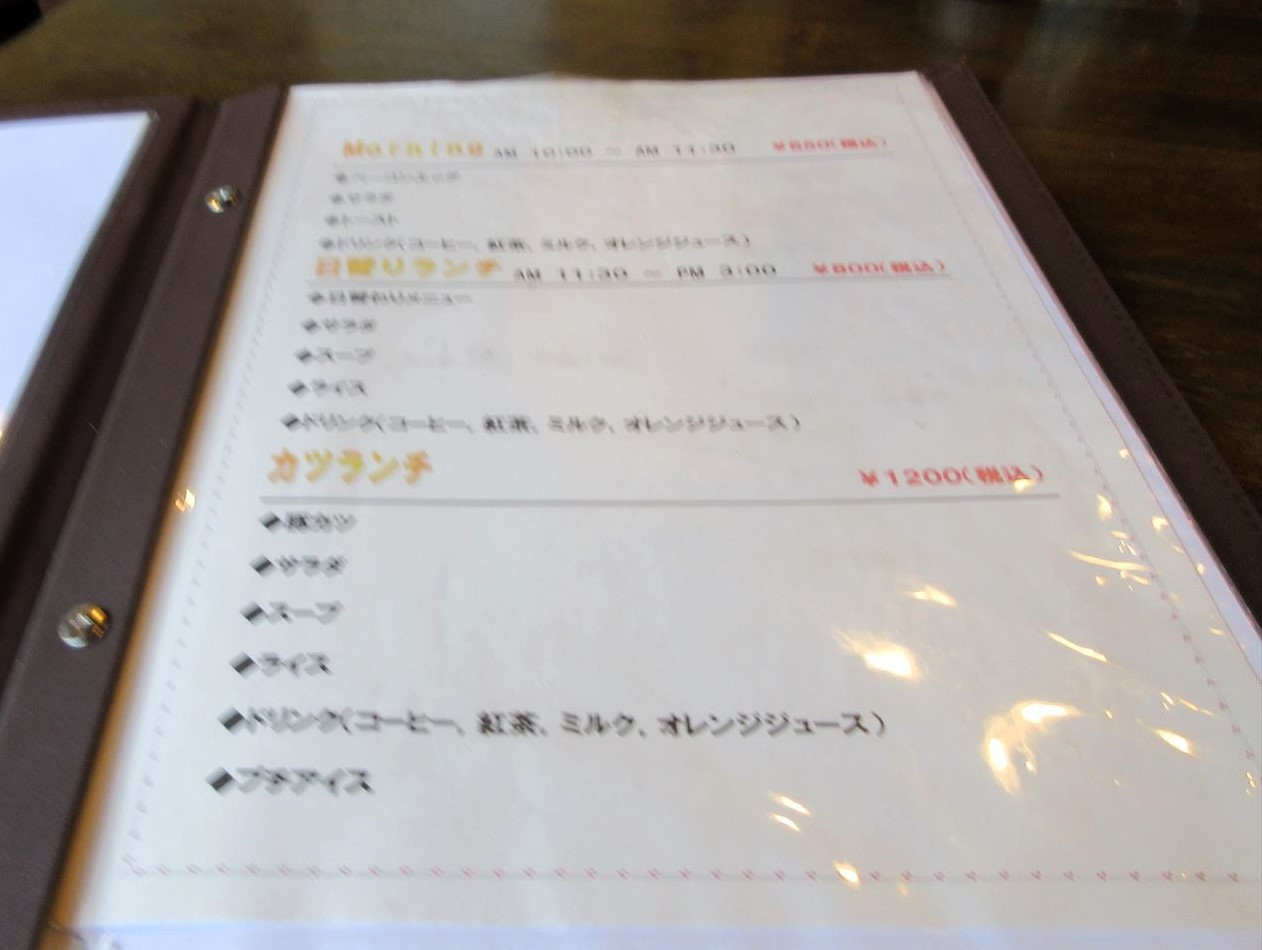 Morning AM 10:00 ～ AM 11:30 (税込)
◆ベーコンエッグ
◆サラダ
◆トースト
◆ドリンク(コーヒー、紅茶、ミルク、オレンジジュース)
日替りランチ AM 11:30 ～ PM 3:00 ￥800(税込)
◆日替わりメニュー
◆サラダ
◆スープ
◆ライス
◆ドリンク(コーヒー、紅茶、ミルク、オレンジジュース)
カツランチ ￥1200(税込)
◆豚カツ
◆サラダ
◆スープ
◆ライス
◆ドリンク(コーヒー、紅茶、ミルク、オレンジジュース)
◆プチアイス